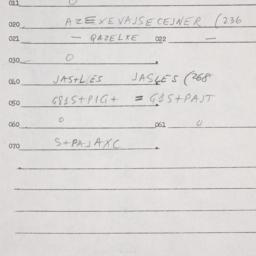 011 0
020 AZEXEVAJSECESNER (236
021 — QAZELXE 022 —
030 0
040 JAS+LES JASLES (268
050 G81S+PIG+ = G1S+PAJT
060 0 061 0
070 S+PAJAXC